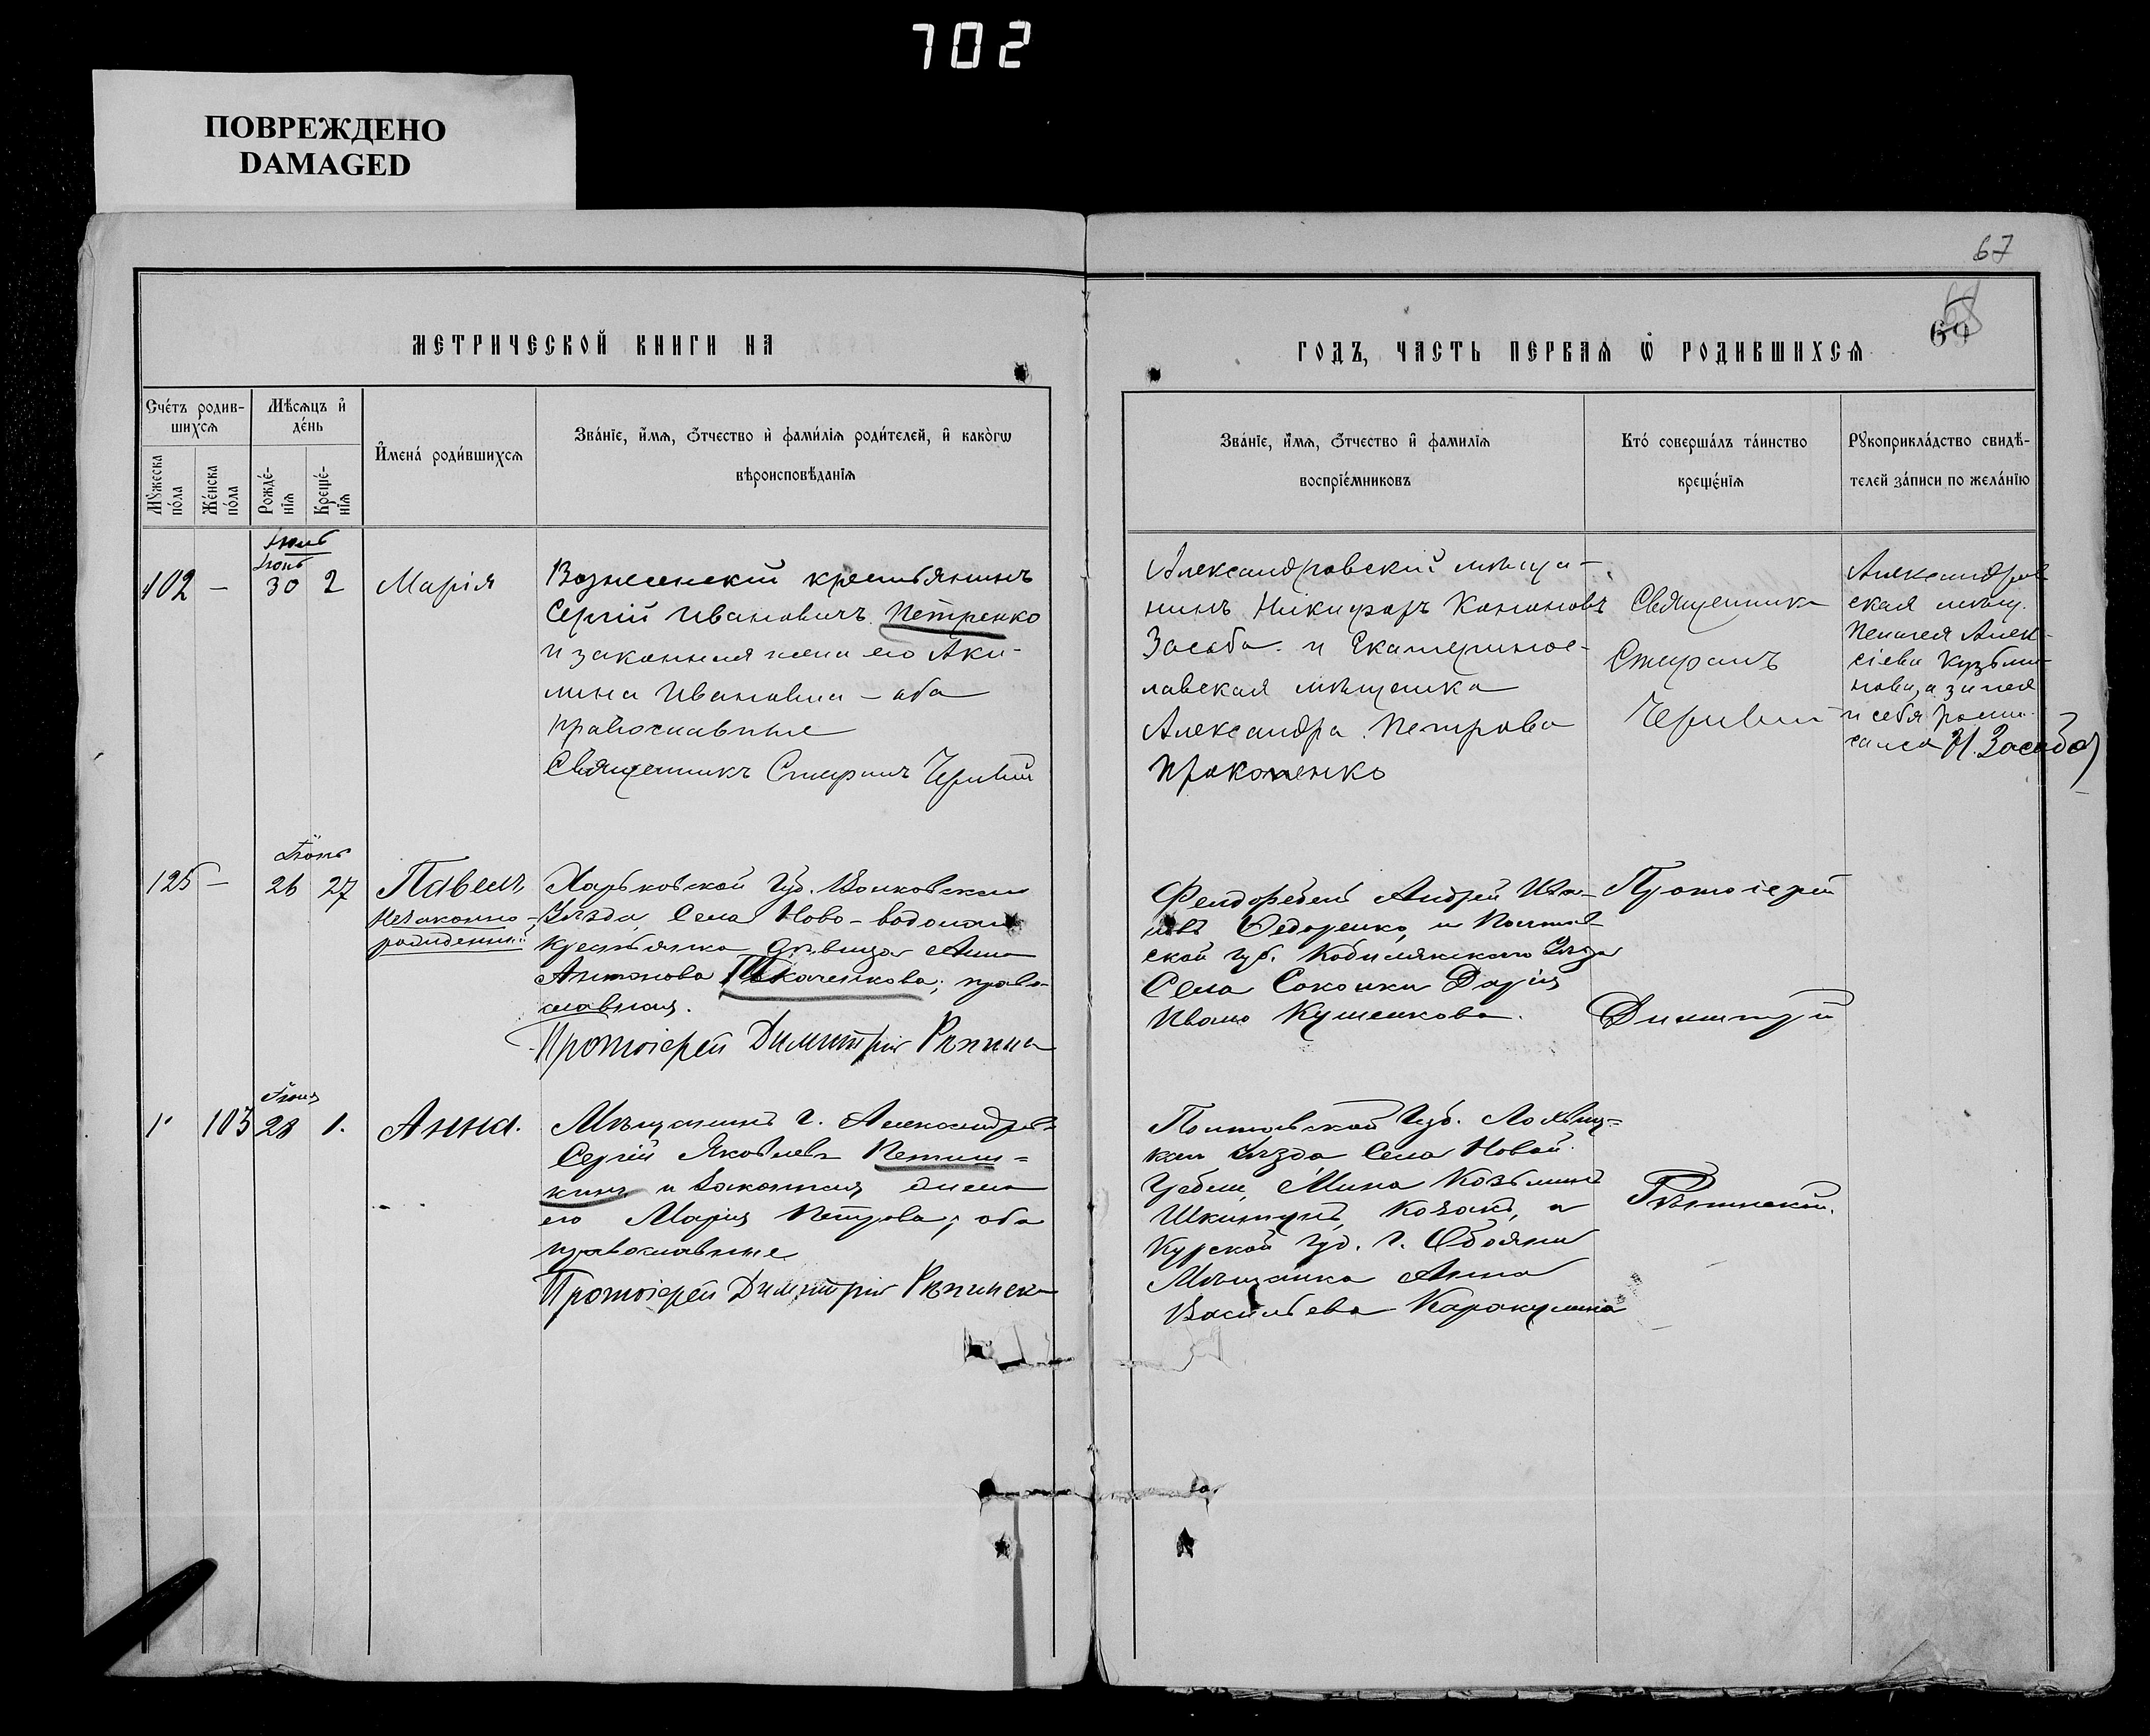 702
ПОВРЕЖДЕНО
DAMAGED
67
МЕТРИЧЕСКОЙ КНИГИ НА
ГОДЪ, ЧАСТЬ ПЕРВАЯ Ѿ РОДИВШИХСЯ
Счétъ родив-
шихся
Мѣсяцъ и
день
Имена родившихся
Званіе, имя, отчество и фамилія родителей, и какогω
вѣроисповѣданія
Мужеска
пола
Женска
пола
Рожде-
нія
Креще-
нія
Званіе, имя, отчество и фамилія
воспріемниковъ
Кто совершалъ таинство
крещенія
Рукоприкладство свидѣ-
телей записи по желанію
Іюнь
102 — 30 2 Марія
Вознесенскій крестьянинъ
Сергій Ивановичъ Петренко
и законная жена его Аки-
лина Ивановна – оба
православные
Священникъ Стефанъ
Александровскій мѣща-
нинъ Никифоръ Кононовъ
Засоба и Екатеринос-
лавская мѣщанка
Александра Петрова
Прокопенко
Священникъ
Стефанъ
Александров
ская мѣщ.
Пелагея Алек-
сіева Кузьми-
нова, а за нея
и себя роспи-
сался Н. Засоба
Іюнь
125 — 26 27 Павелъ
незаконно-
рожденный
Харьковской Губ. Волковскаго
Уѣзда, Села Ново-водолаги
крестьянка дѣвица Анна
Антонова Ткаченкова; право-
славная.
Протоіерей Димитрій
Фельдфебель Андрей Ива-
новъ Федоренко, и Полтав
ской губ. Кобелякскаго Уѣзда
Села Соколки Дарія
Ивано Кушенкова.
Протоіерей
Димитрій
Іюня
1 103 28 1. Анна.
Мѣщанинъ г. Александров
Сергій Яковлевъ
и законная жена
его Марія Петрова; оба
православные
Протоіерей Димитрій
Полтавской Губ. Лохвиц-
каго уѣзда Села Новой
Гребли, Мина Козьминъ
козакъ, и
Курской губ. г. Обояни
Мѣщанка Анна
Васильева Каракулина